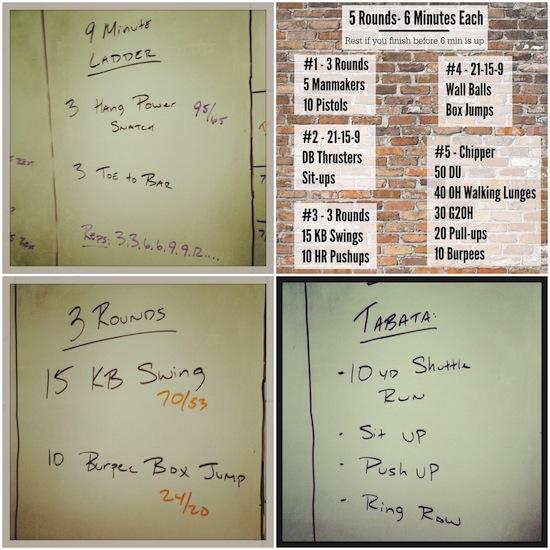 9 Minute
Ladder
3 Hang Power
Snatch
95/65
3 Toe to Bar
Reps: 3,3,6,6,9,9,12....
5 Rounds- 6 Minutes Each
Rest if you finish before 6 min is up
#1 - 3 Rounds
5 Manmakers
10 Pistols
#2 - 21-15-9
DB Thrusters
Sit-ups
#3 - 3 Rounds
15 KB Swings
10 HR Pushups
#4 - 21-15-9
Wall Balls
Box Jumps
#5 - Chipper
50 DU
40 OH Walking Lunges
30 G2OH
20 Pull-ups
10 Burpees
3 Rounds
15 KB Swing
70/53
10 Burpee Box Jump
24/20
Tabata:
- 10 yd Shuttle
Run
- Sit up
- Push up
- Ring Row